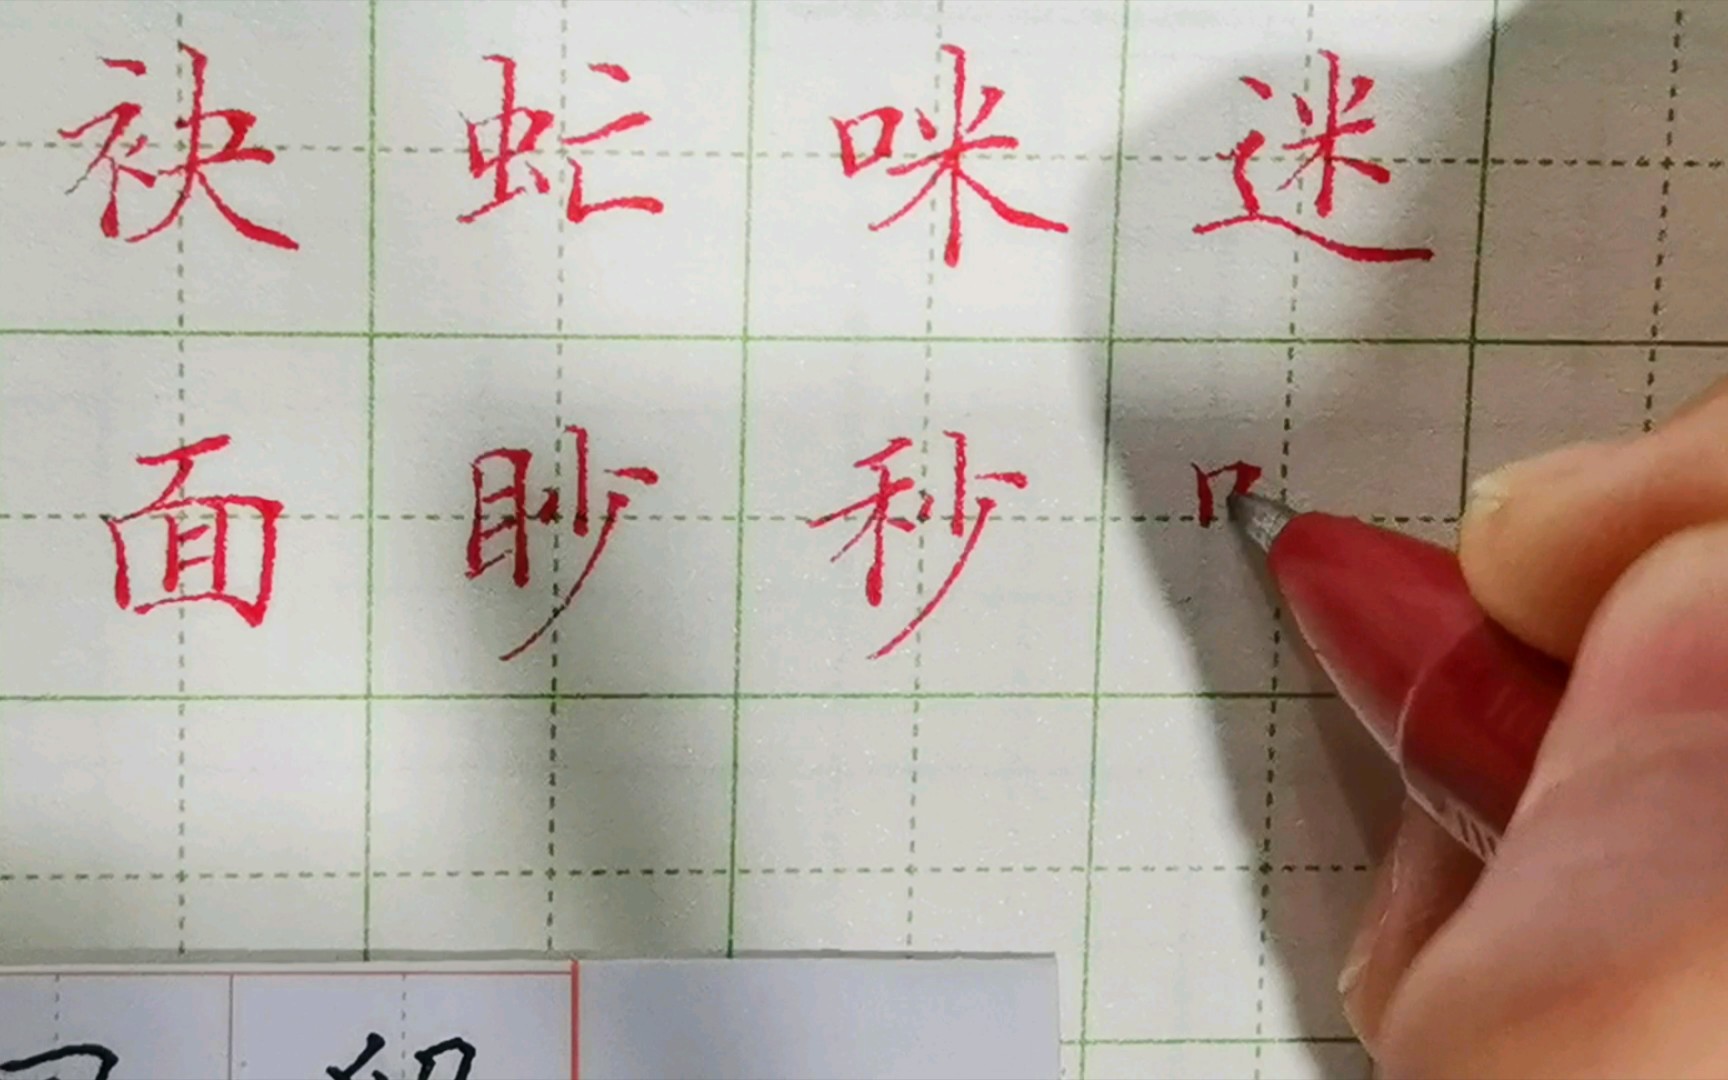 袂虻咪迷
面眇秒